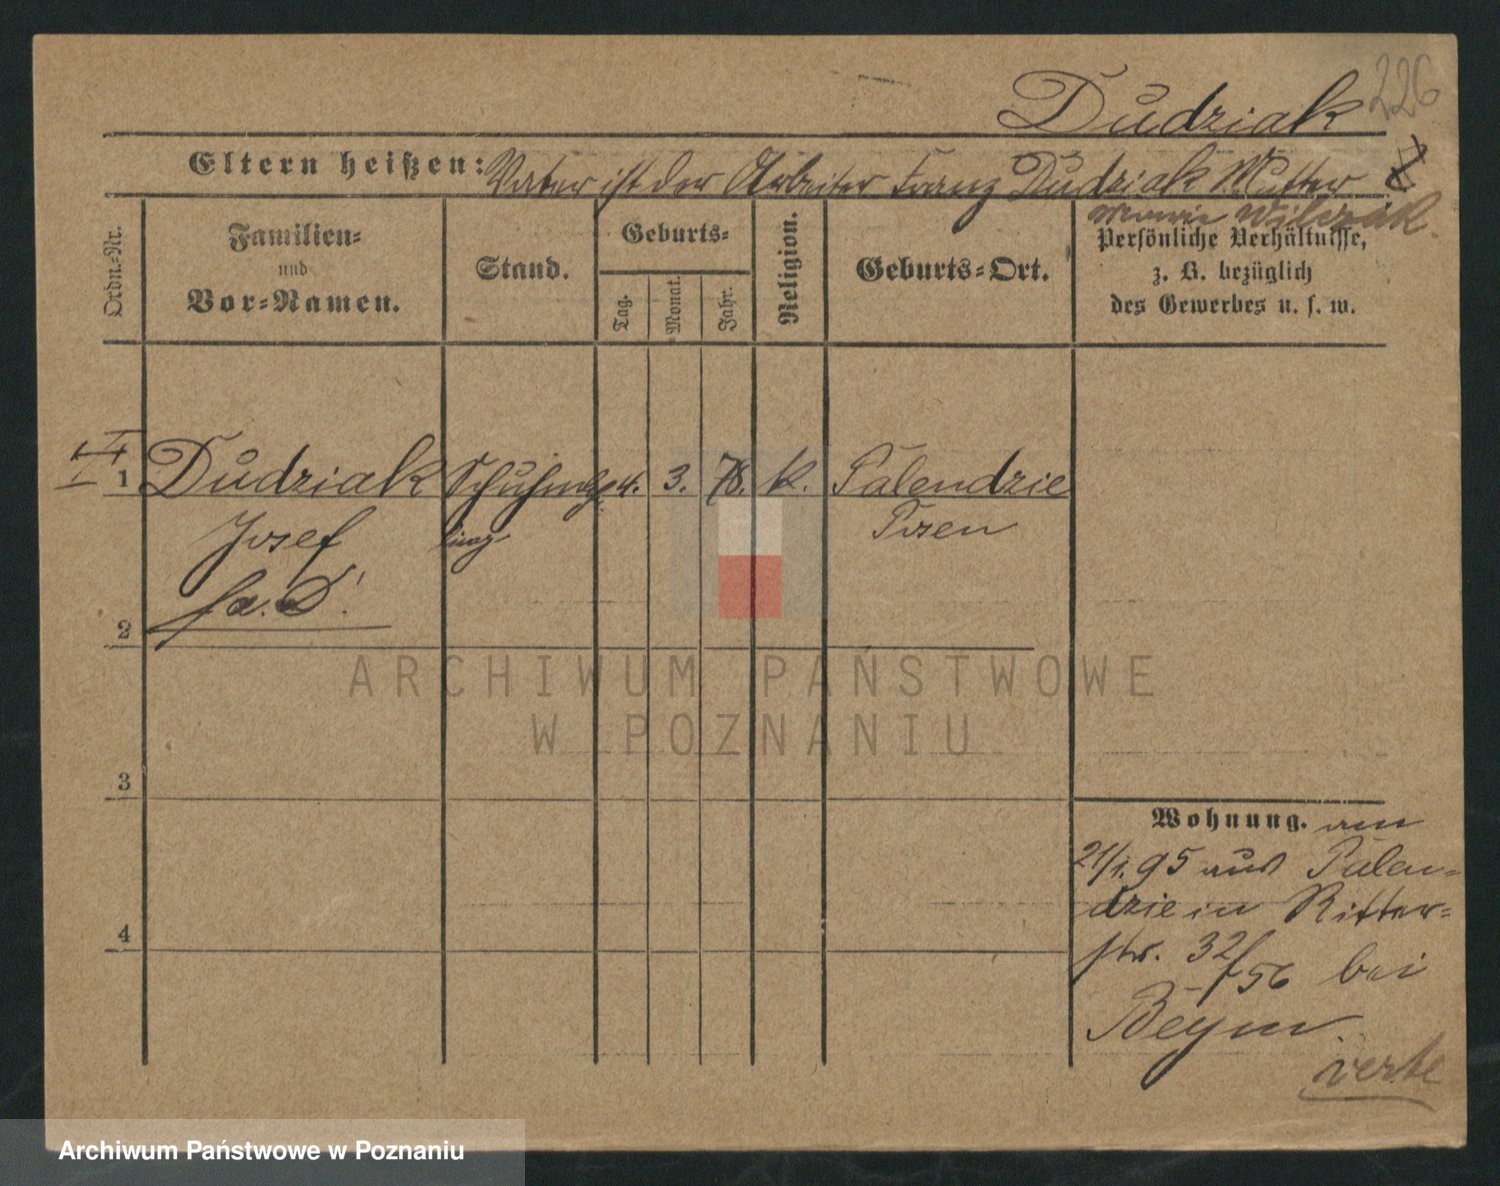 226
Dudziak
Eltern heißen: Vater ist der Arbeiter Franz Dudziak Mutter
Wilczak.
Ordn.-Nr.
Familien-
und
Vor-Namen.
Stand.
Geburts-
Tag.
Monat.
Jahr.
Religion.
Geburts-Ort.
Persönliche Verhältnisse,
z. B. bezüglich
des Gewerbes u. s. w.
1 Dudziak 4. 3. 78. k. Palendzie
Josef Posen
2
3
4
Wohnung. am
21/1. 95 aus Palen-
dzie in Ritter-
str. 32/56 bei
Beym
verte
ARCHIWUM PAŃSTWOWE
W POZNANIU
Archiwum Państwowe w Poznaniu